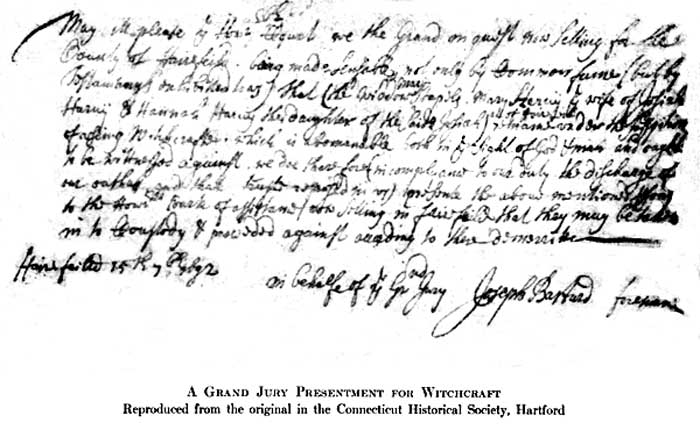 May it please yᵉ Honʳᵇˡᵉ Court we the Grand on quest now setting for the
County of Fairefeild being made sensable not only by Common fame (but by
testamonys deliuered to us) that the widdow Mary Staple, Mary Haruy yᵉ wife of Josiah
Haruy & Hannah Haruy the daughter of the said Josiah of Fairefeild remaine under the susspition
of useing Witchcraft which is abomanable both in yᵉ sight of God & man and ought
to be witnessed against. we doe therefore in complyance to our duty the discharge of
our oathes and that trust reposed in us) presente the above mentioned
to the Honʳᵇˡᵉ Court of assistants (now setting in Fairefeild that they may be taken
in to Coustody & proceded against according to there demerits
Fairefeild 15th 7ᵇʸ 1692
in behalfe of yᵉ Grnd Jury
Joseph Bastard foreman
A GRAND JURY PRESENTMENT FOR WITCHCRAFT
Reproduced from the original in the Connecticut Historical Society, Hartford